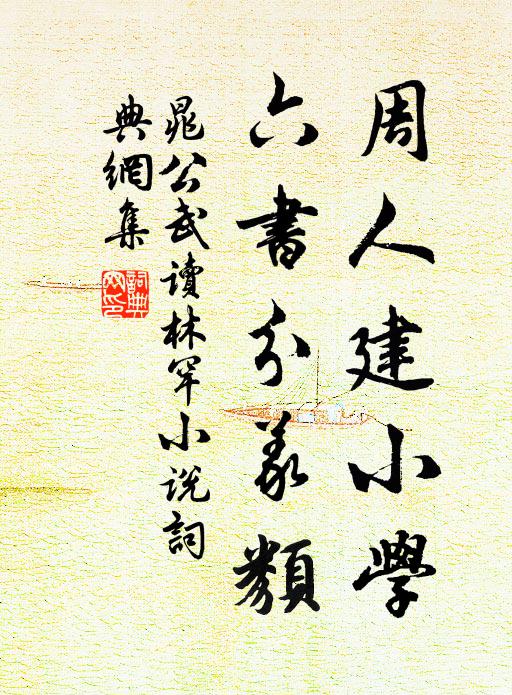 周人建小學
六書分義類
晁公武讀林罕小說詞
典網集
詞典網印